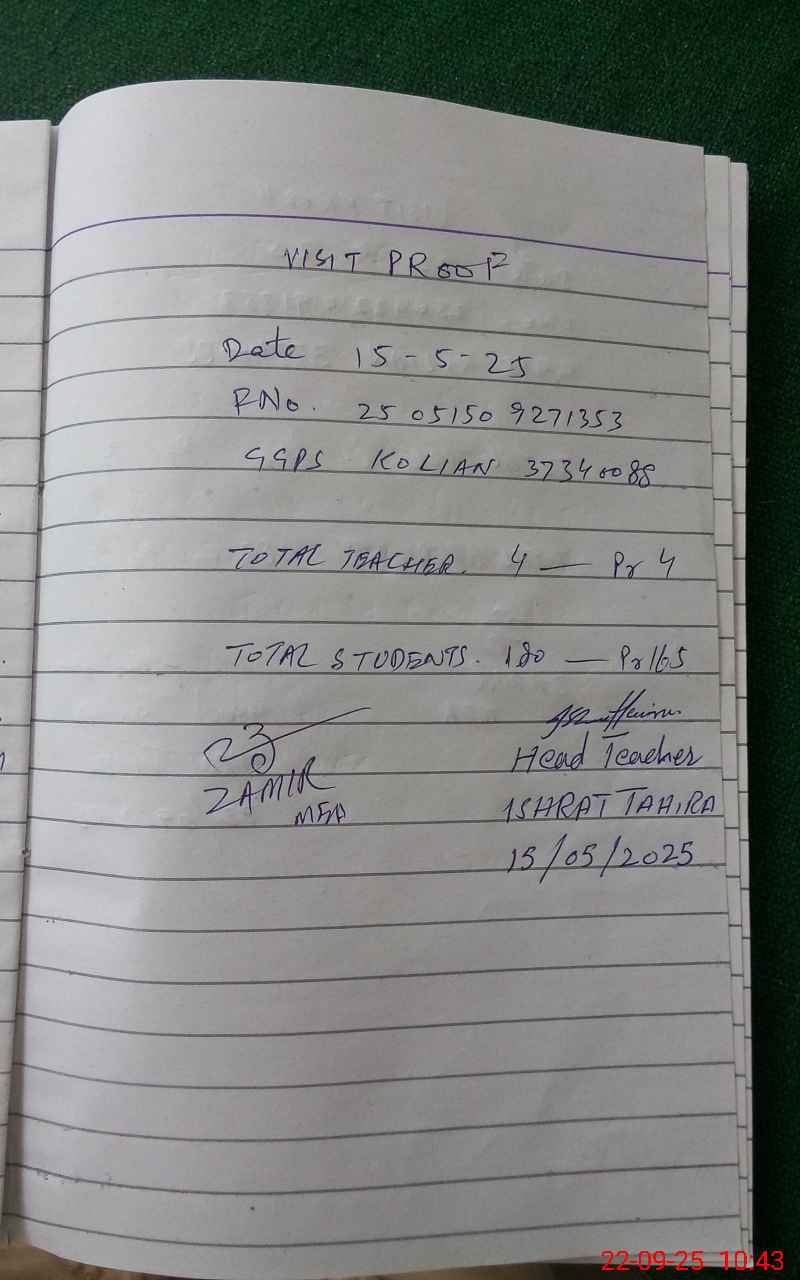 VISIT PROOF
Date 15-5-25
RNo. 25 05150 9271353
GGPS KOLIAN 37340088
TOTAL TEACHER. 4 — Pr 4
TOTAL STUDENTS. 180 — Pr 165
Head Teacher
ZAMIR
MEA
ISHRAT TAHIRA
15/05/2025
22-09-25 10:43